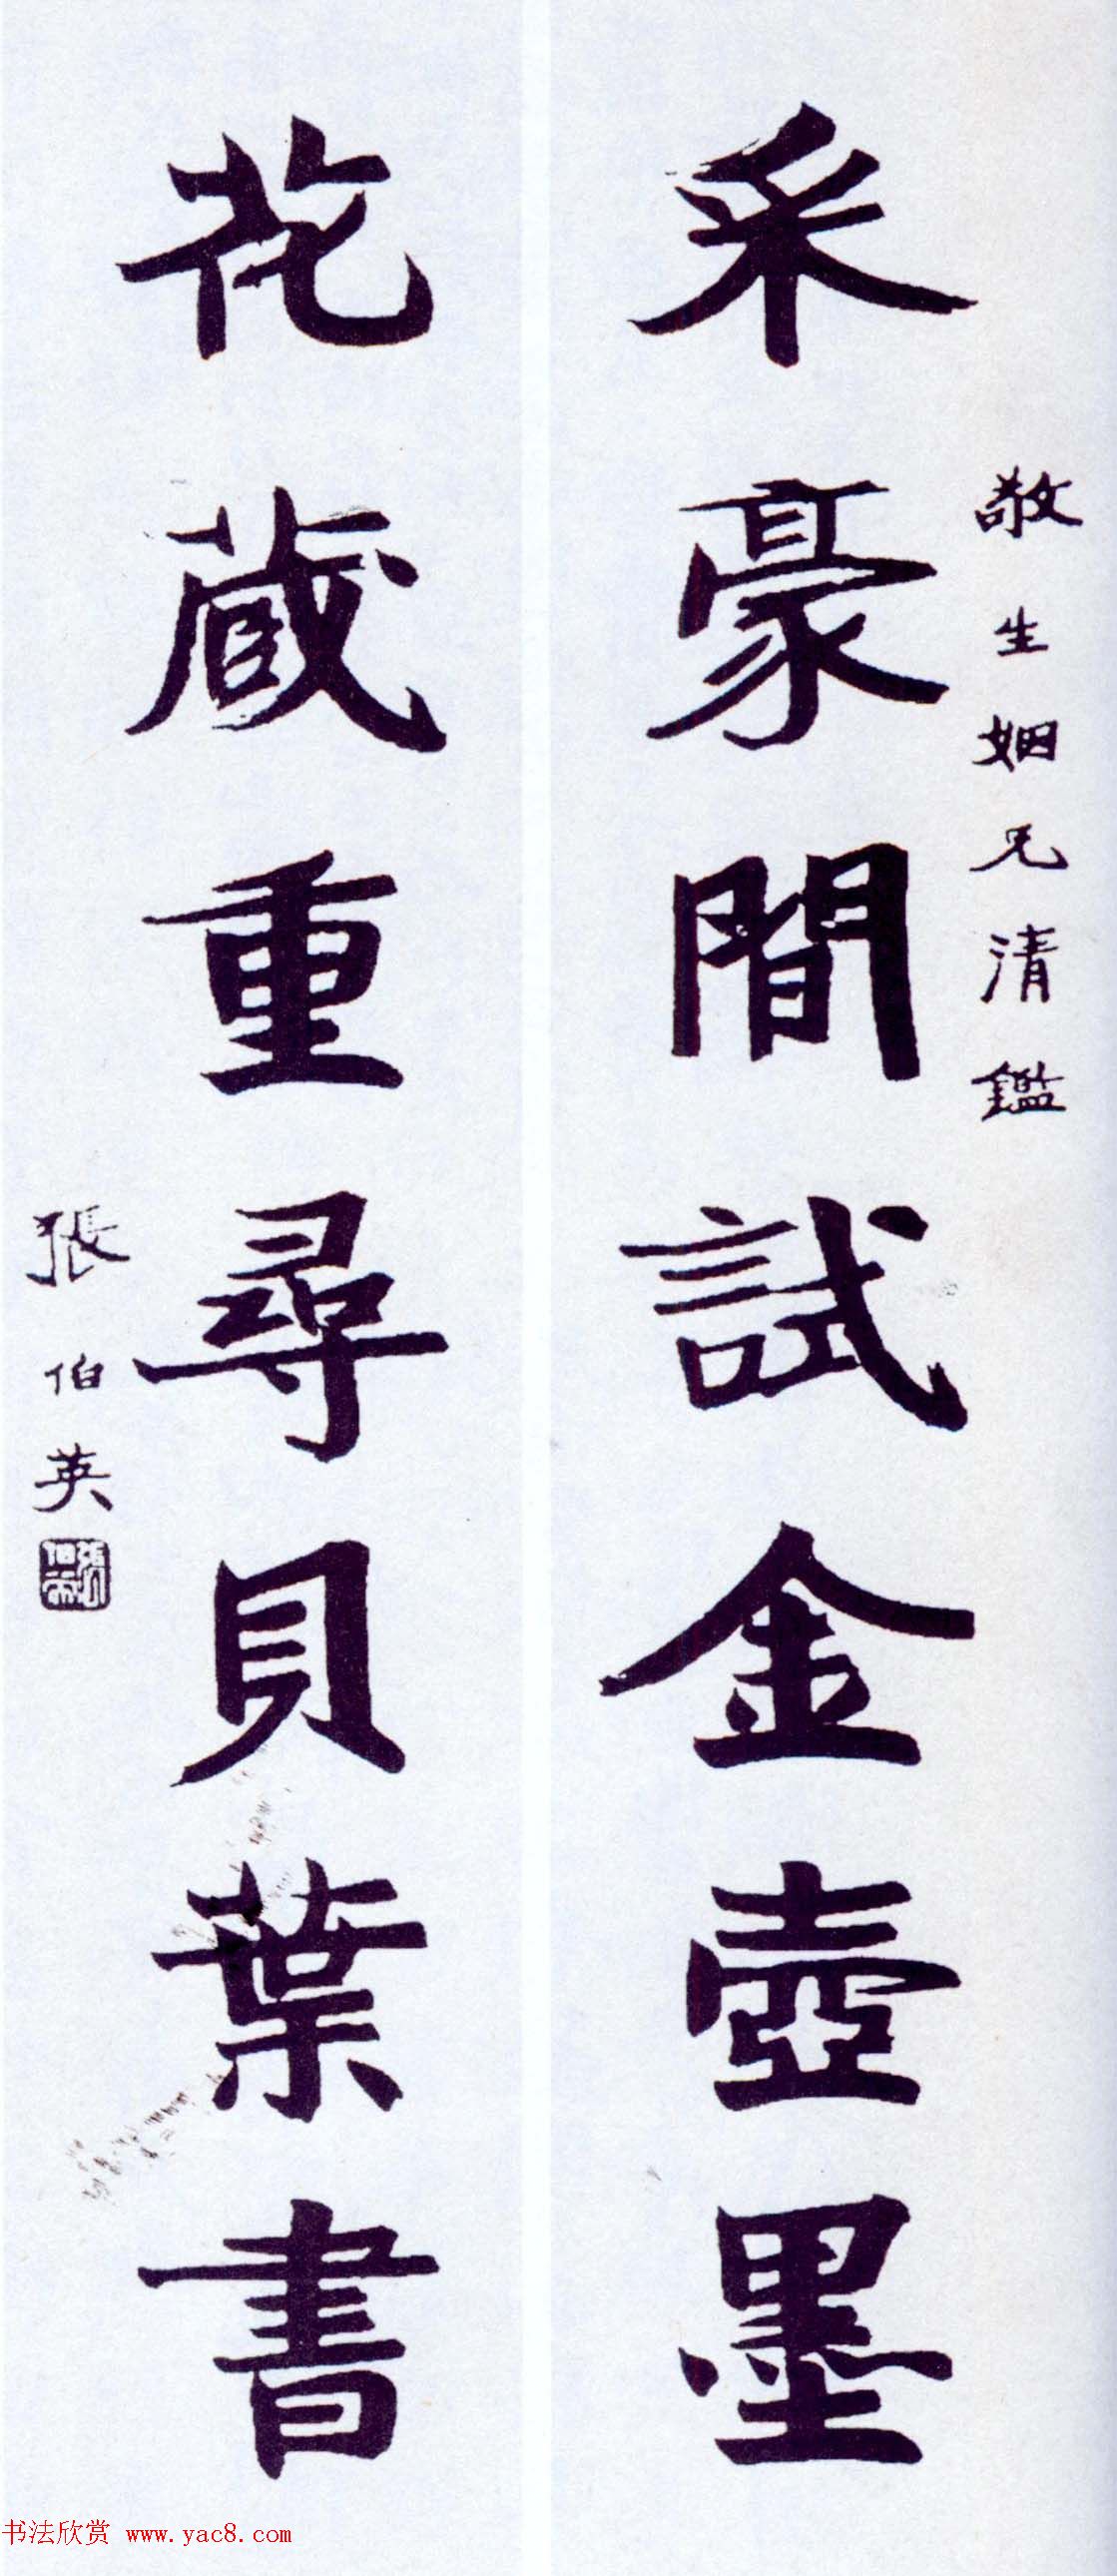 敬生姻兄清鑑
采豪閒試金壺墨
花蔵重尋貝葉書
張伯英
书法欣赏 www.yac8.com